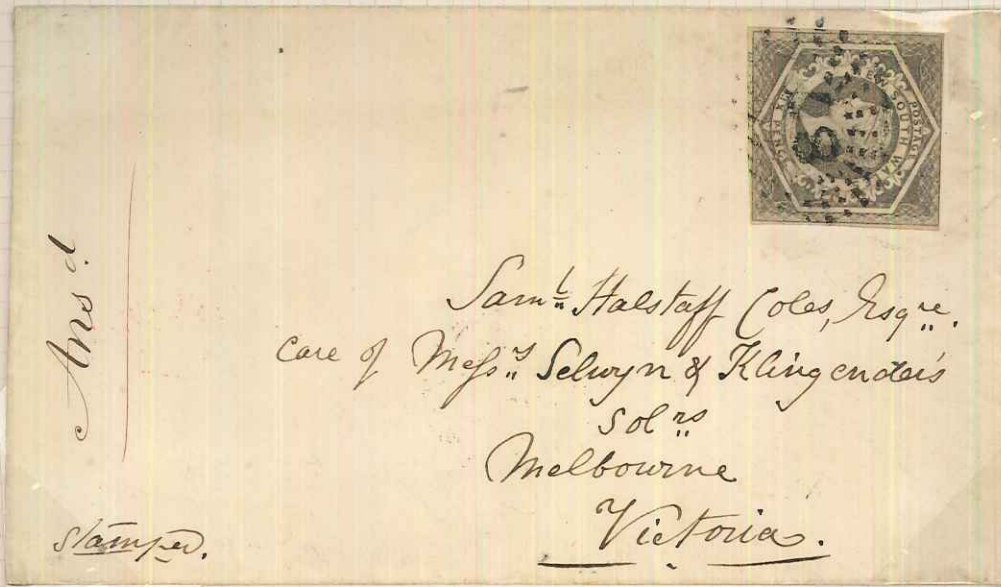 POSTAGE
NEW SOUTH WAL
SIX PENCE
Ans.d
Sam.l Halstaff Coles, Esq.re.
Care of Mess.rs Selwyn & Klingender's
Sol.rs
Melbourne
Victoria.
Stamped.